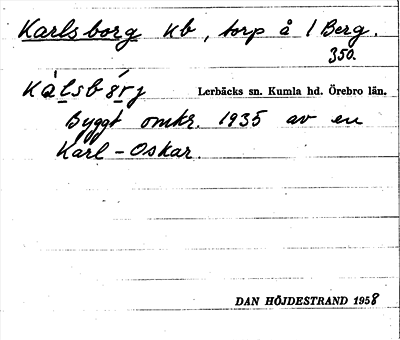 Karlsborg kb, torp å 1 Berg.
350.
Kàlsbórj Lerbäcks sn. Kumla hd. Örebro län.
Byggt omkr. 1935 av en
Karl-Oskar.
DAN HÖJDESTRAND 1958